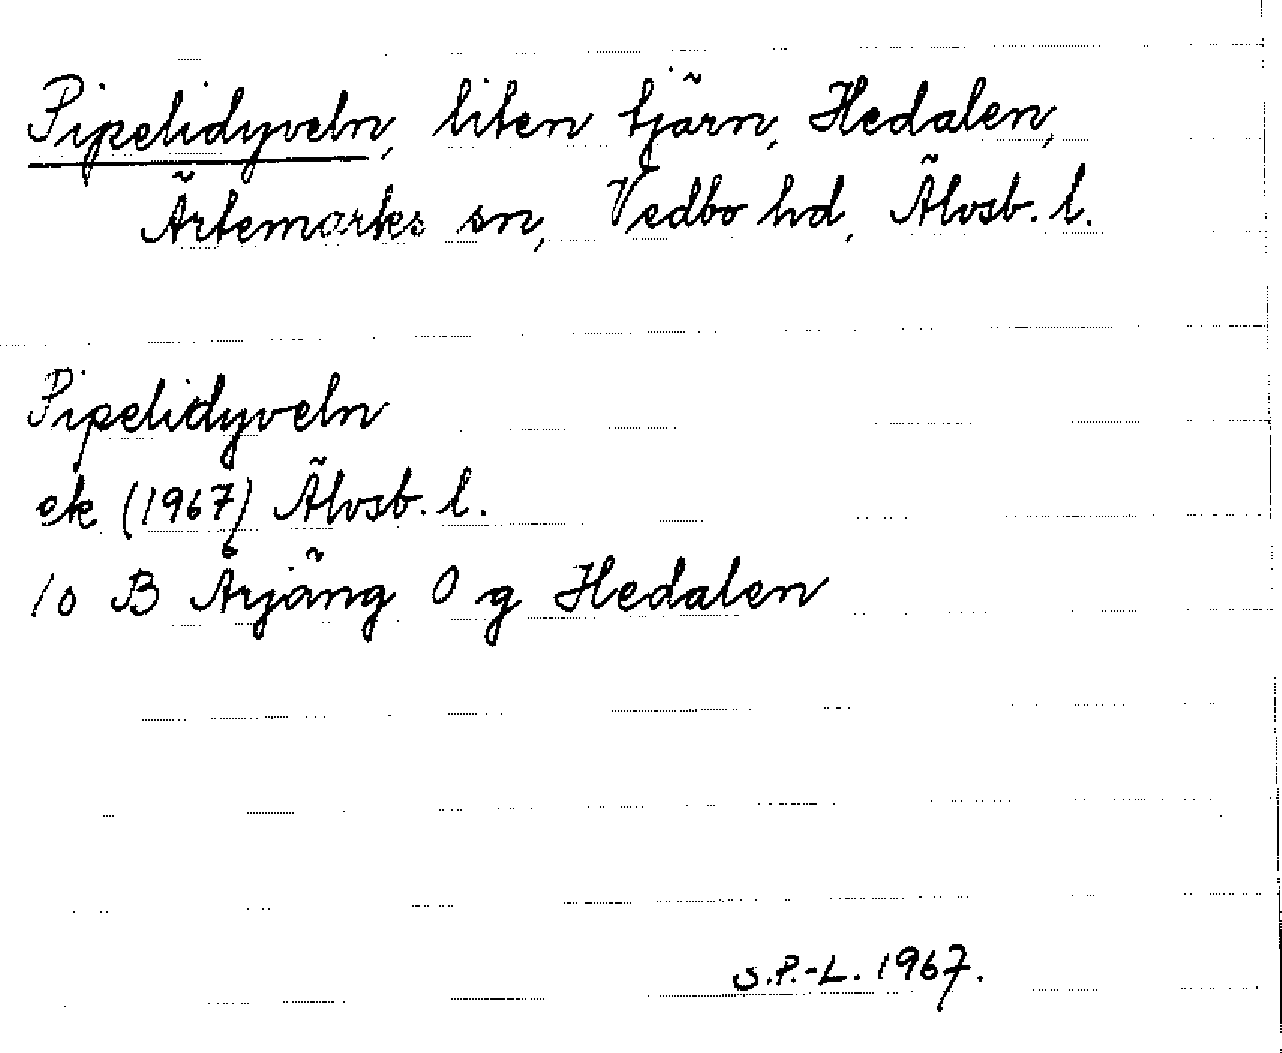 Pipelidyveln, liten tjärn, Hedalen,
Ärtemarks sn, Vedbo hd, Älvsb. l.
Pipelidyveln
ek (1967) Älvsb. l.
10 B Årjäng 0 g Hedalen
S.P.-L. 1967.